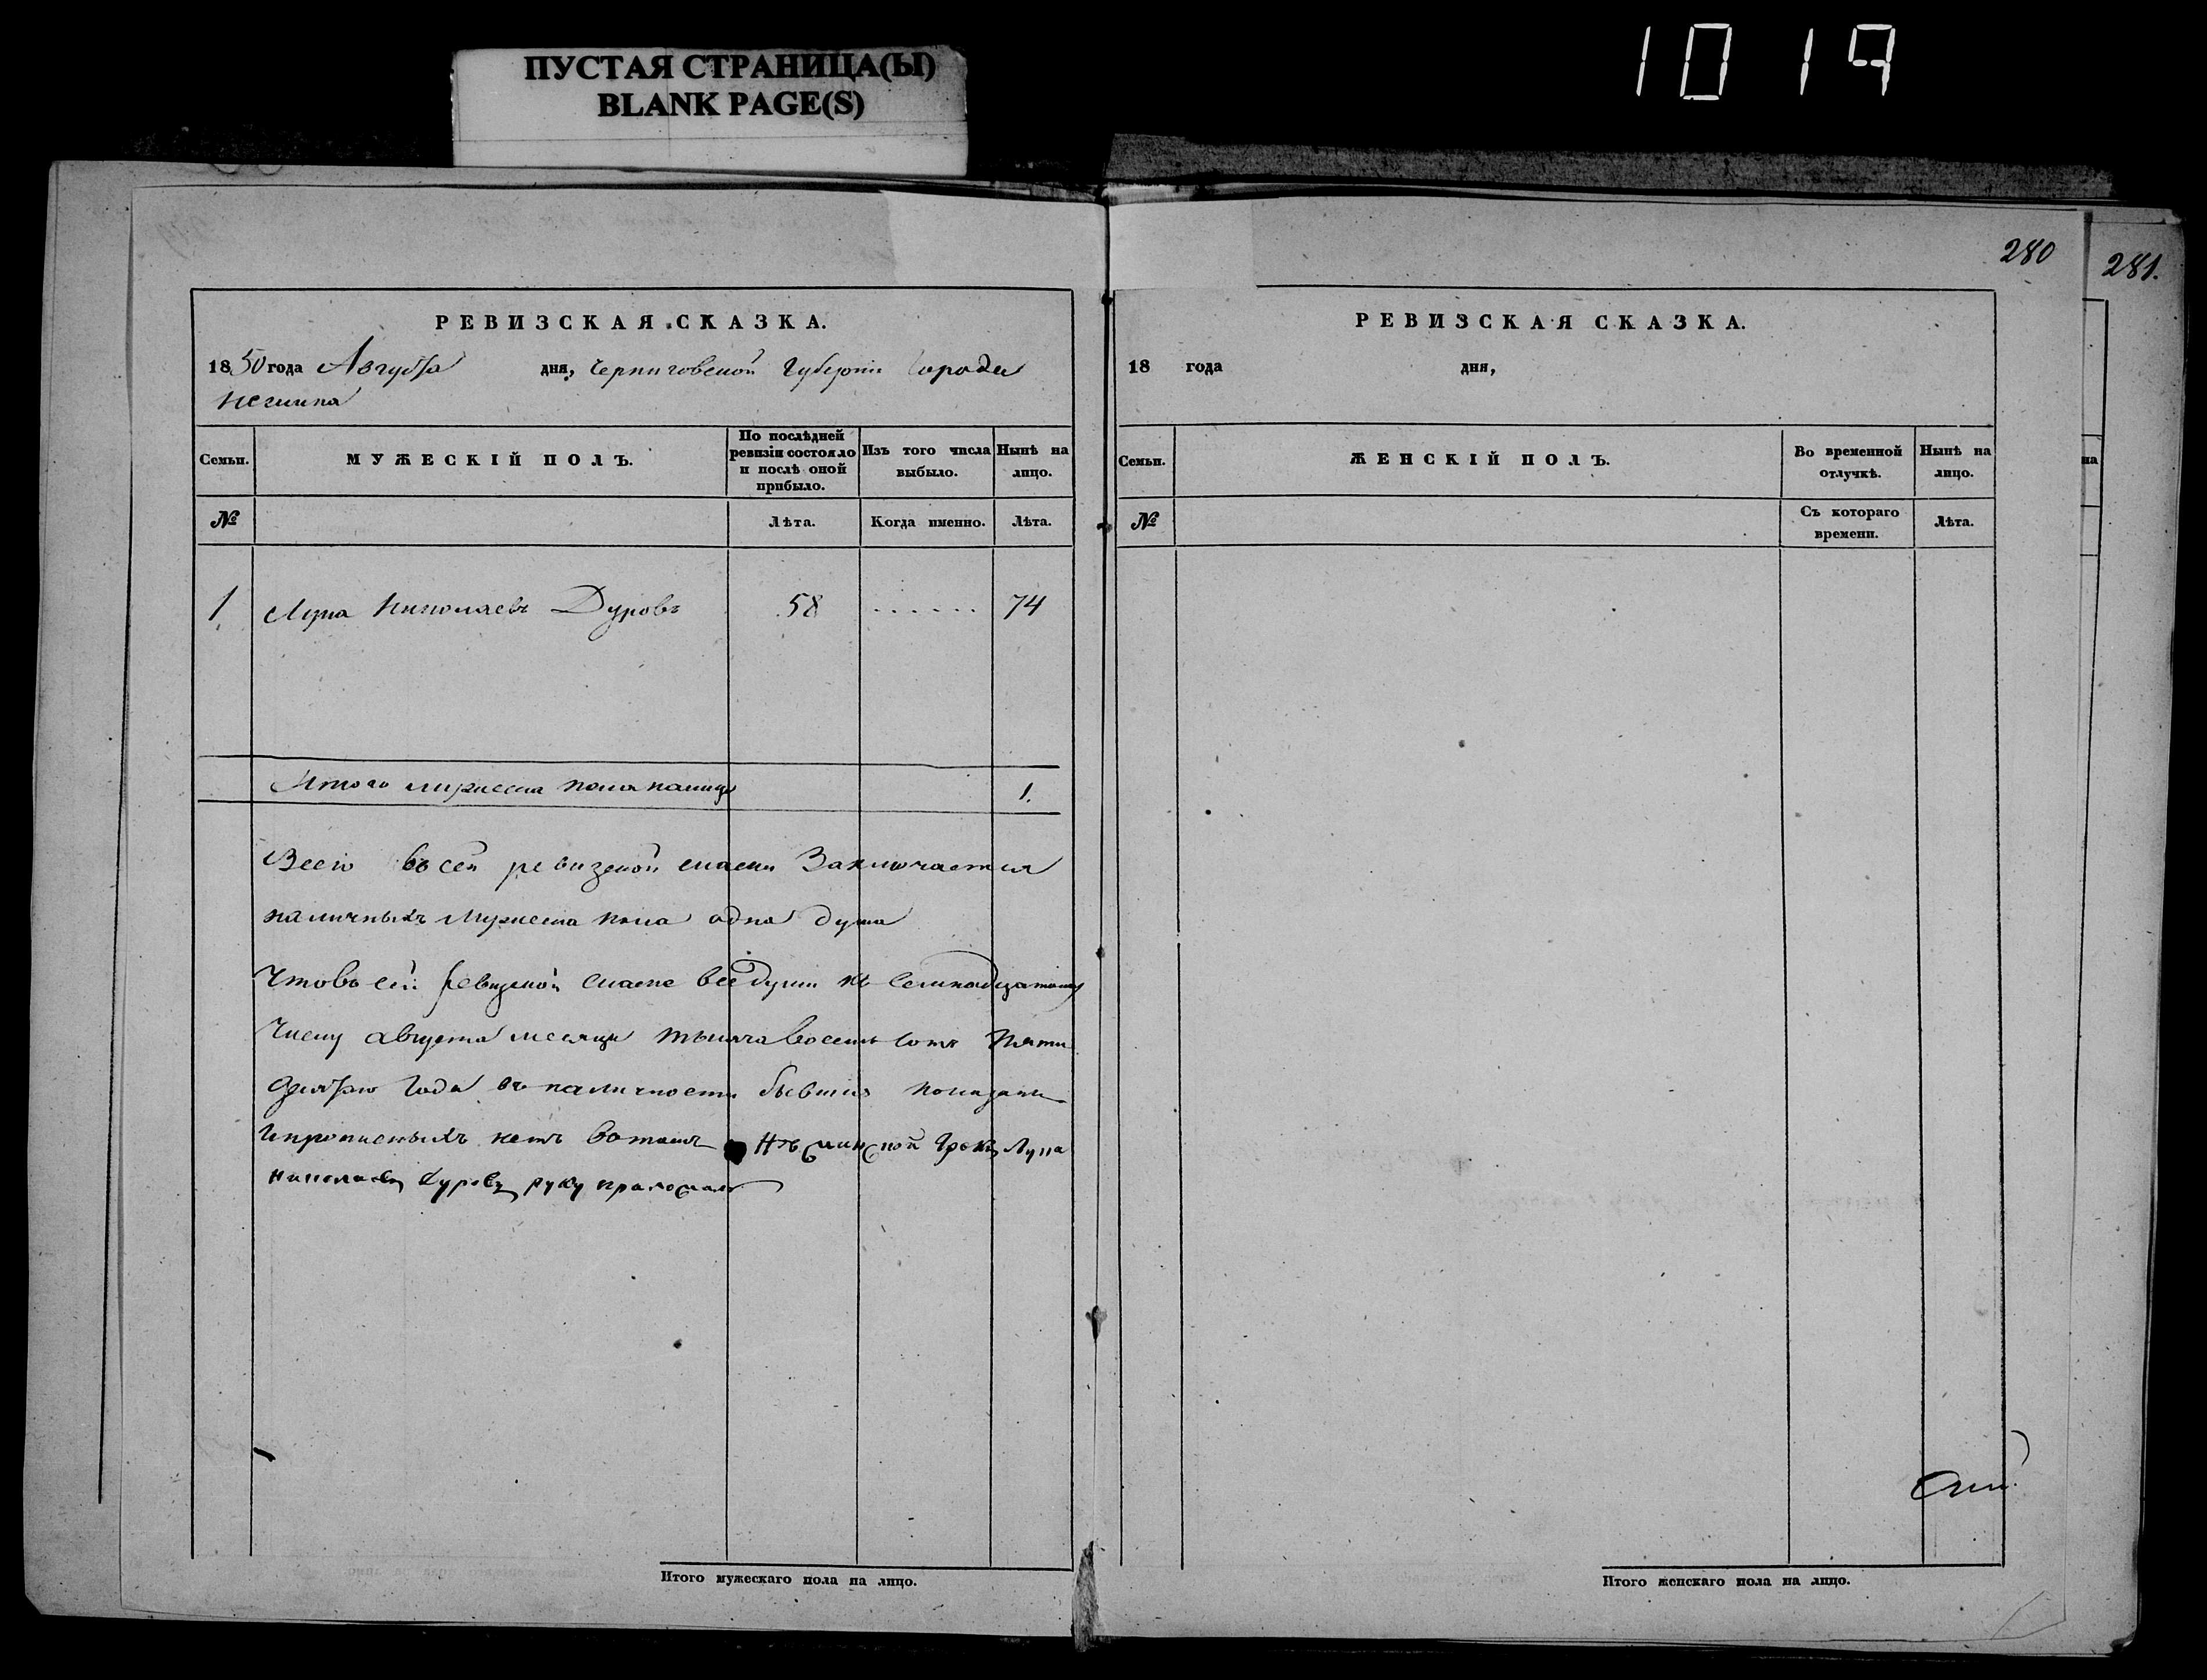 ПУСТАЯ СТРАНИЦА(Ы)
BLANK PAGE(S)
1019
280
281.
РЕВИЗСКАЯ СКАЗКА.
1850 года Августа дня, Черниговской Губерніи Города
Нежина
Семьи.
МУЖЕСКІЙ ПОЛЪ.
По послѣдней ревизіи состояло и послѣ оной прибыло.
Изъ того числа выбыло.
Нынѣ на лицо.
№
Лѣта.
Когда именно.
Лѣта.
1 Лупа Николаевъ Дуровъ 58 ...... 74
Итого мужеска пола налицо 1.
Всего въ сей ревизской сказки Заключается
наличныхъ Мужеска пола одна душа
Что въ сей Ревизской Сказке все души къ Семнадцатому
Числу августа месяца тысяча восемь сотъ Пяти
десятаго Года въ наличности бывшия показаны
и прописныхъ нетъ въ томъ Нѣжинской Грекъ Лупа
Николаевъ Дуровъ руку приложилъ
Итого мужескаго пола на лицо.
РЕВИЗСКАЯ СКАЗКА.
18 года дня,
Семьи.
ЖЕНСКІЙ ПОЛЪ.
Во временной отлучкѣ.
Нынѣ на лицо.
№
Съ котораго времени.
Лѣта.
Итого женскаго пола на лицо.
на